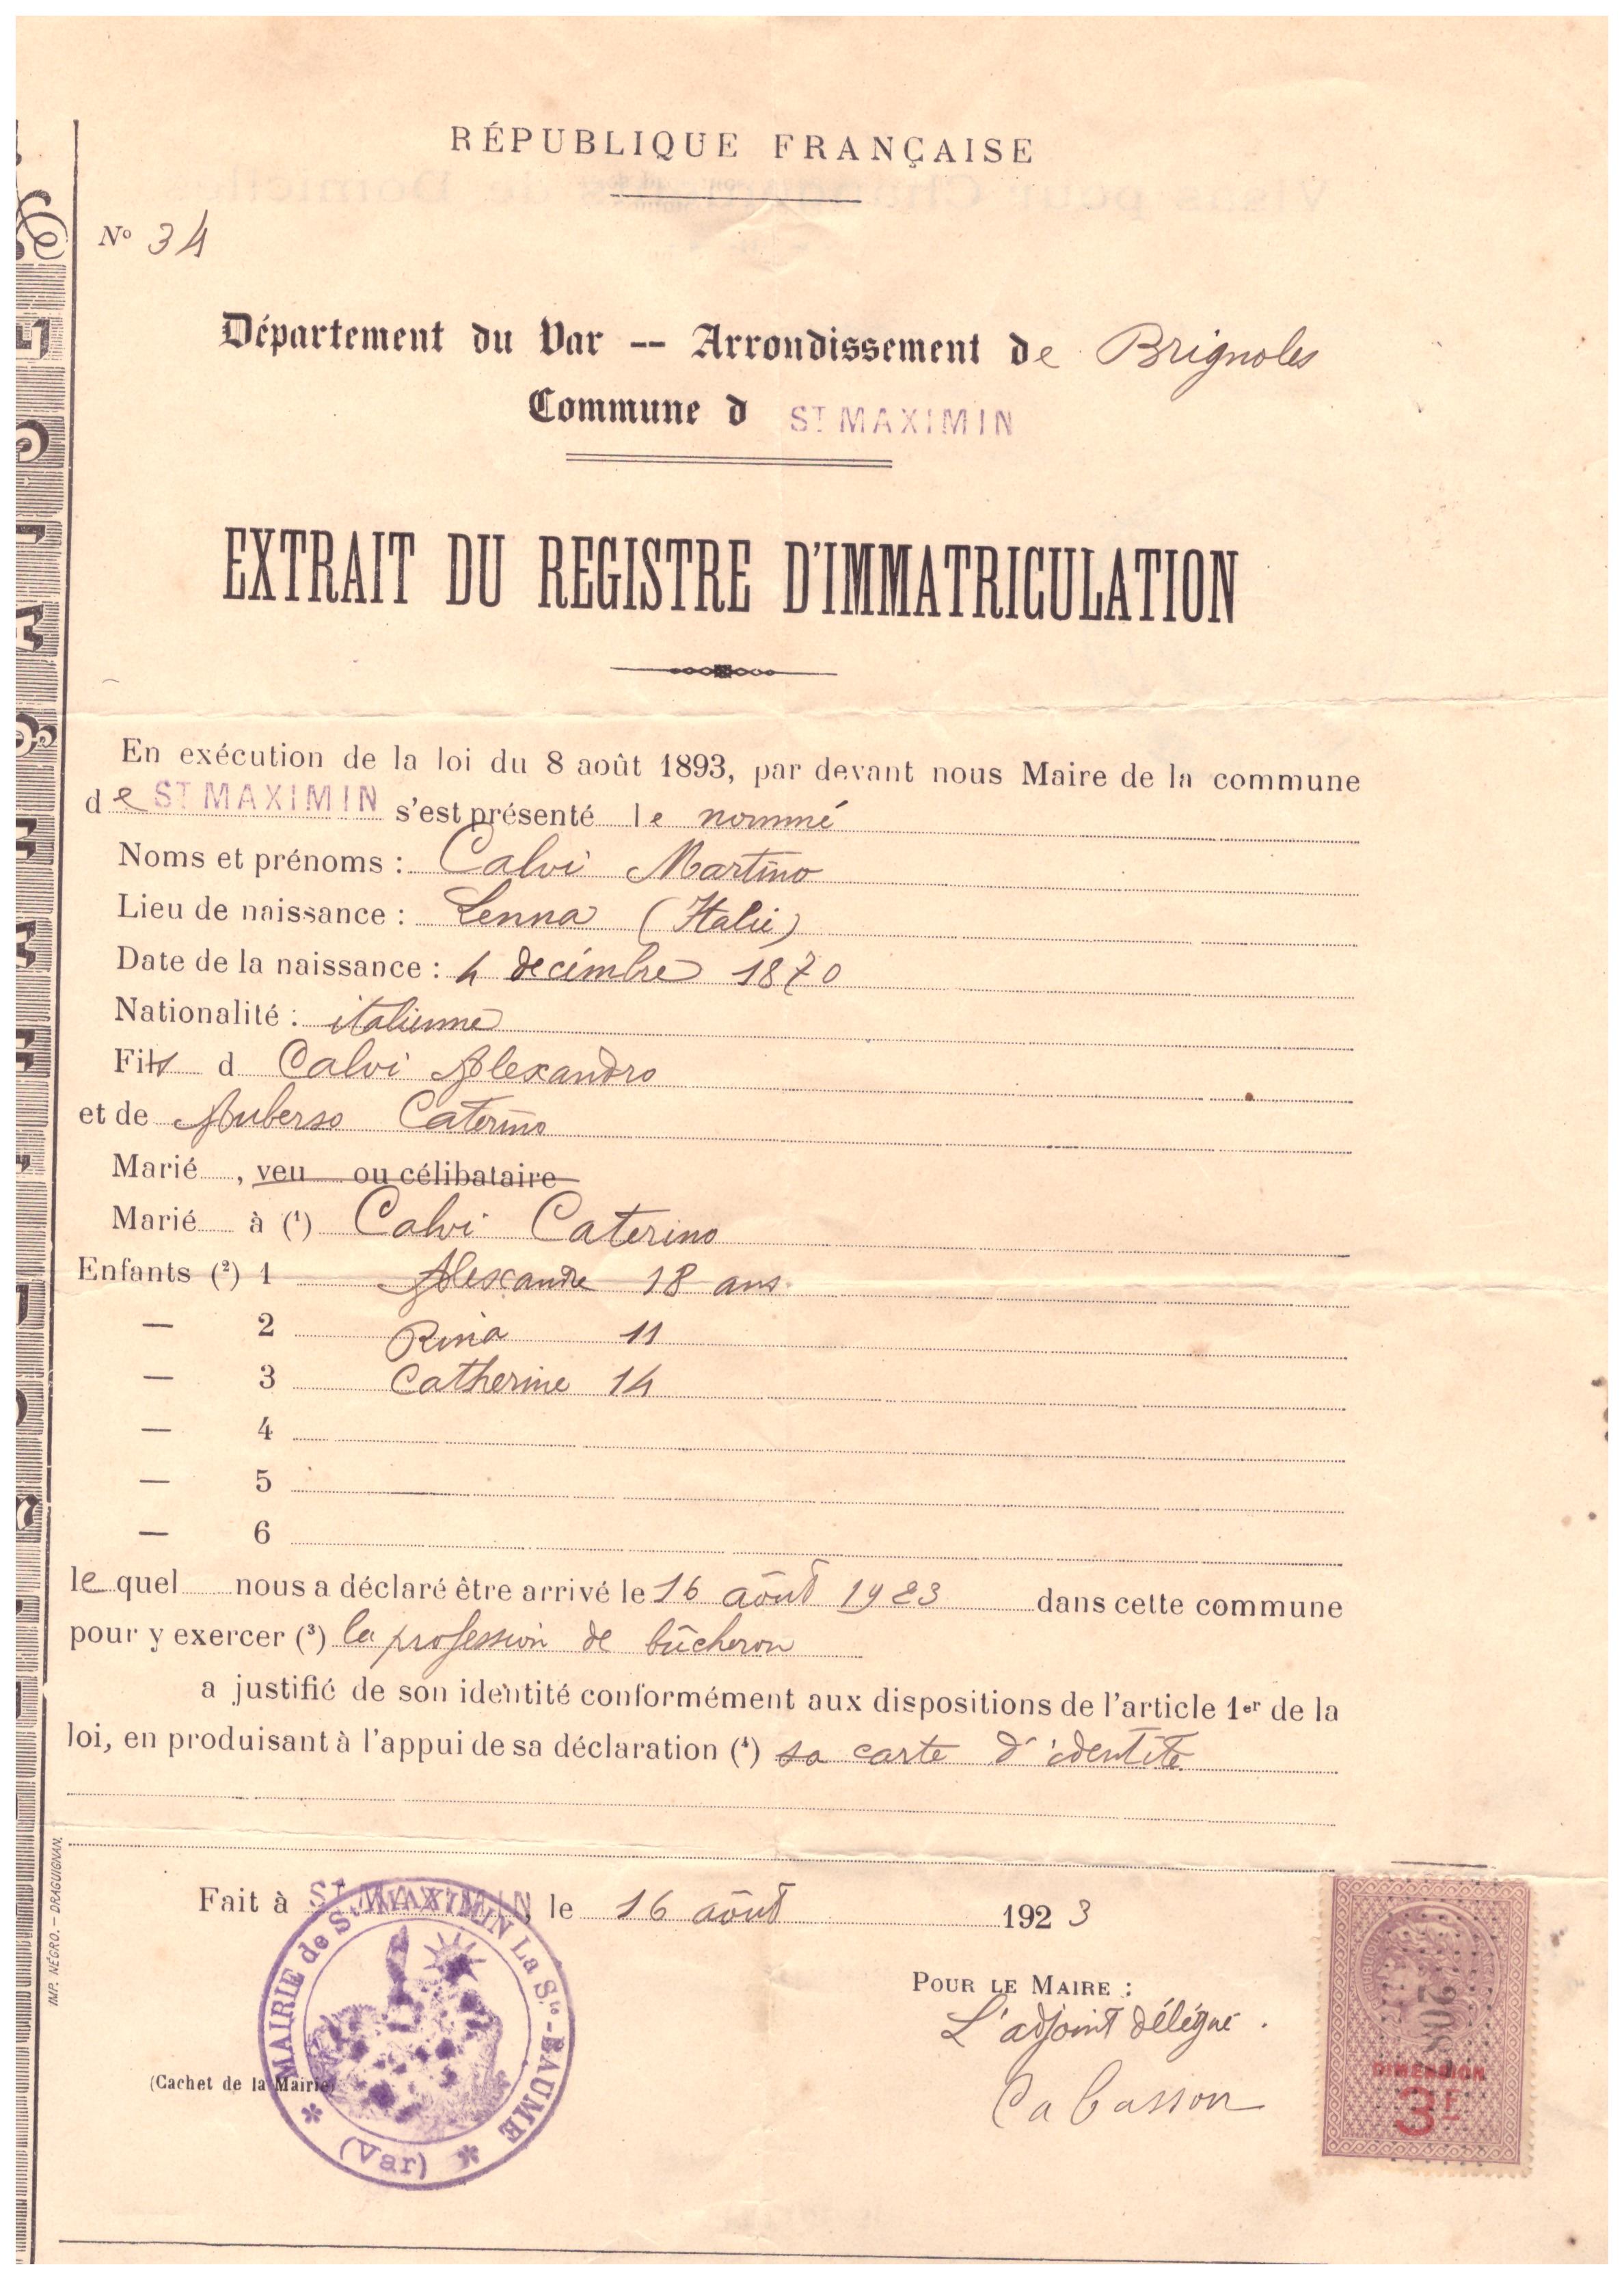 RÉPUBLIQUE FRANÇAISE
No 34
Département du Var -- Arrondissement de Brignoles
Commune d ST MAXIMIN
EXTRAIT DU REGISTRE D'IMMATRICULATION
En exécution de la loi du 8 août 1893, par devant nous Maire de la commune
de ST MAXIMIN s'est présenté le nommé
Noms et prénoms : Calvi Martino
Lieu de naissance : Lenna (Italie)
Date de la naissance : 4 décembre 1870
Nationalité : italienne
Fils d Calvi Alexandro
et de Auberso Caterino
Marié , veu ou célibataire
Marié à (1) Calvi Caterino
Enfants (2) 1 Alexandre 18 ans
— 2 Rina 11
— 3 Catherine 14
— 4
— 5
— 6
le quel nous a déclaré être arrivé le 16 août 1923 dans cette commune
pour y exercer (3) la profession de bûcheron
a justifié de son identité conformément aux dispositions de l'article 1er de la
loi, en produisant à l'appui de sa déclaration (4) sa carte d'identité
Fait à ST MAXIMIN, le 16 août 1923
POUR LE MAIRE :
L'adjoint délégué.
Cabasson
(Cachet de la Mairie)
MAIRIE de St MAXIMIN La Ste-BAUME
(Var)
DIMENSION
3F
IMP. NÉGRO. — DRAGUIGNAN.